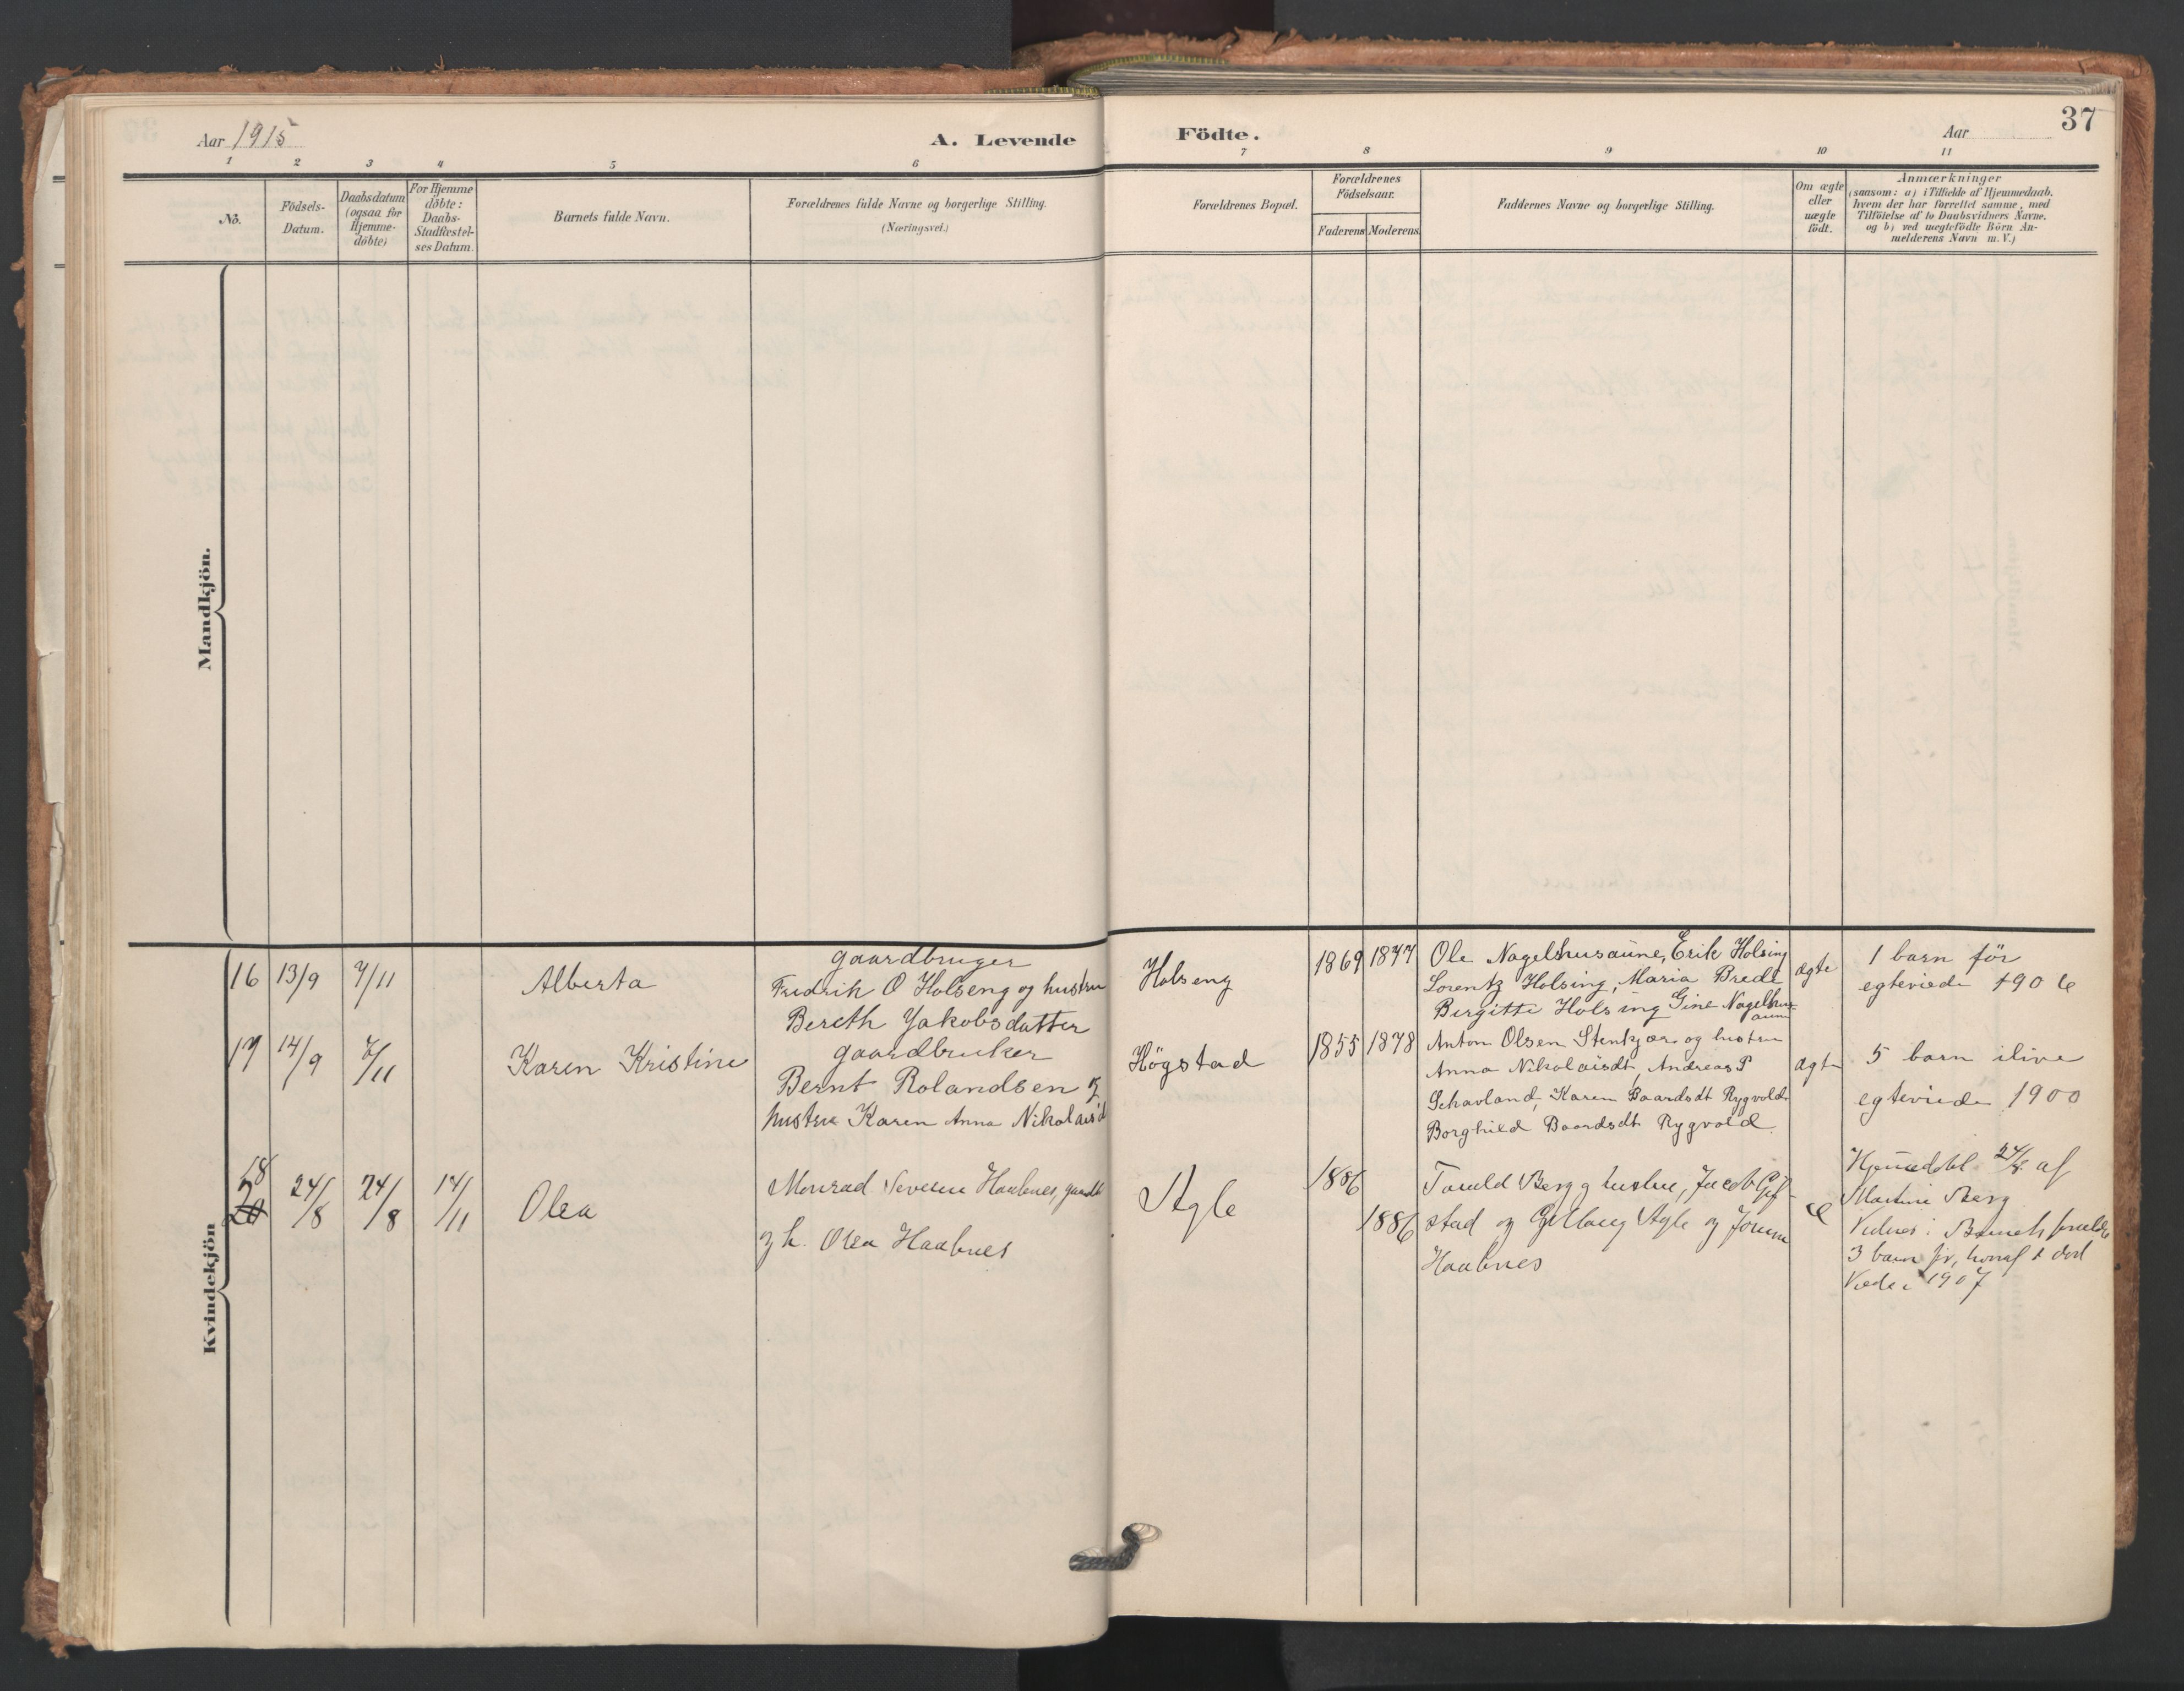 37
Aar 1915
A. Levende
Födte.
Aar
1 2 3 4 5 6 7 8 9 10 11
No.
Födsels-
Datum.
Daabsdatum
(ogsaa for
Hjemme-
döbte)
For Hjemme
döbte:
Daabs-
Stadfæstel-
ses Datum.
Barnets fulde Navn.
Forældrenes fulde Navne og borgerlige Stilling.
(Næringsvei.)
Forældrenes Bopæl.
Forældrenes
Födselsaar.
Faderens
Moderens
Faddernes Navne og borgerlige Stilling.
Om ægte
eller
uægte
födt.
Anmærkninger
(saasom: a) i Tilfælde af Hjemmedaab,
hvem der har forrettet samme, med
Tilföielse af to Daabsvidners Navne,
og b) ved uægtefödte Börn An-
melderens Navn m. V.)
Mandkjön.
Kvindekjön
16 13/9 7/11
Alberta
gaardbruger
Fredrik O Holseng og hustru
Bereth Jakobsdatter
Holseng
1869 1877
Ole Nagelshusaune, Erik Holsing
Lorentz Holsing, Maria Brede
Birgitte Holsing Gine Nagelhus-
aune
ægte
1 barn før
egteviede 190
17 14/9 7/11
Karen Kristine
gaardbruker
Bernt Rolandsen og
hustru Karen Anna Nikolaisd
Högstad
1855 1878
Anton Olsen Stenkjær og hustru
Anna Nikolaisdt, Andreas P
Schavland, Karen Baardsdt Rygvold
Borghild Baardsdt Rygvold
ægt
5 barn ilive
egteviede 1900
18
20
24/8 24/8 14/11
Olea
Monrad Haabnes, gaardb
og h. Olea Haabnes
Agle
1886
1886
Berg og hustru, Jacob Gif-
stad og Agle og
Haabnes
Hjemmedøbt 24/8 af
Martine Berg
Vidner: Barnets forældre
3 barn før, hvoraf 1 død
Viede i 1907